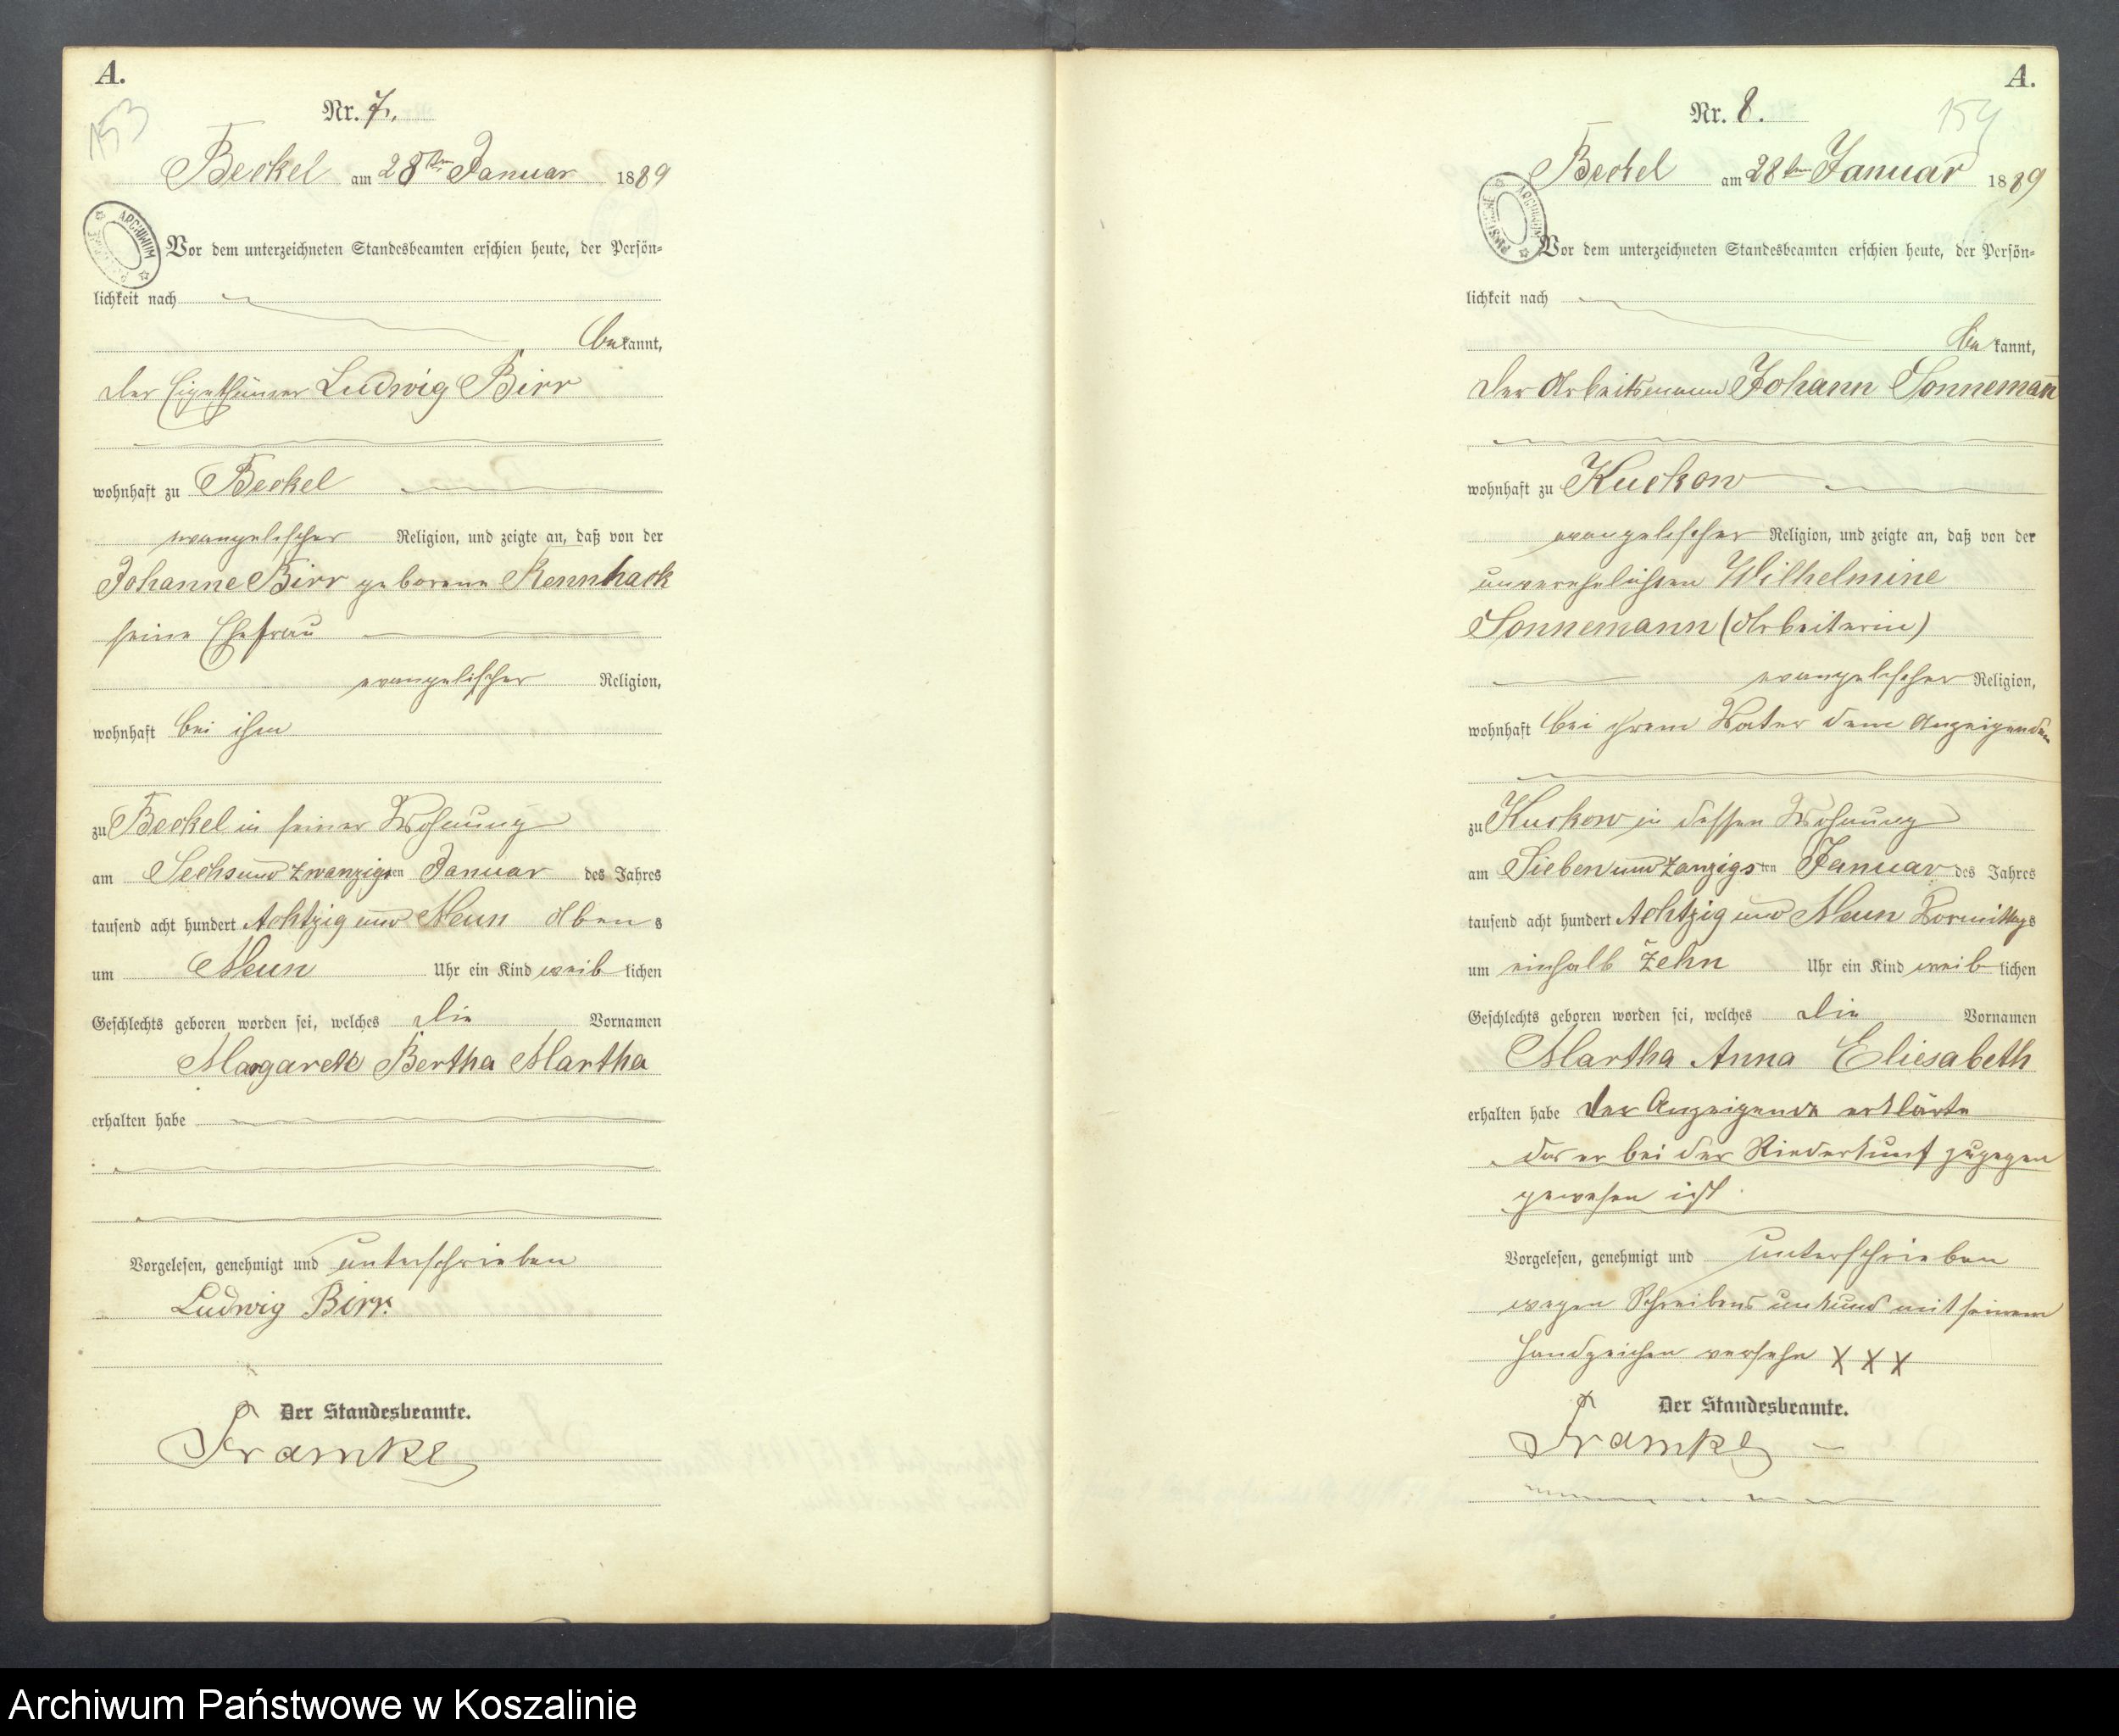 A.
153
Nr. 7.
Beckel am 28ten Januar 1889
ARCHIWUM
Vor dem unterzeichneten Standesbeamten erschien heute, der Persön-
lichkeit nach
bekannt,
der Eigenthümer Ludwig Birr
wohnhaft zu Beckel
evangelischer Religion, und zeigte an, daß von der
Johanne Birr geborene Rennhack
seine Ehefrau
evangelischer Religion,
wohnhaft bei ihm
zu Beckel in seiner Wohnung
am Sechsundzwanzigsten Januar des Jahres
tausend acht hundert Achtzig und Neun Abens
um Neun Uhr ein Kind weiblichen
Geschlechts geboren worden sei, welches die Vornamen
Margareth Bertha Martha
erhalten habe
Vorgelesen, genehmigt und unterschrieben
Ludwig Birr.
Der Standesbeamte.
Framke
A.
154
Nr. 8.
Beckel am 28ten Januar 1889
ARCHIWUM
Vor dem unterzeichneten Standesbeamten erschien heute, der Persön-
lichkeit nach
bekannt,
der Arbeitsmann Johann Sonnemann
wohnhaft zu Kuckow
evangelischer Religion, und zeigte an, daß von der
unverehelichten Wilhelmine
Sonnemann (Arbeiterin)
evangelischer Religion,
wohnhaft bei ihrem Vater dem Anzeigenden
zu Kuckow in dessen Wohnung
am Siebenundzanzigsten Januar des Jahres
tausend acht hundert Achtzig und Neun Vormittags
um einhalb Zehn Uhr ein Kind weiblichen
Geschlechts geboren worden sei, welches die Vornamen
Martha Anna Eliesabeth
erhalten habe Der Anzeigende erklärte
das er bei der Niederkunf zugegen
gewesen ist.
Vorgelesen, genehmigt und unterschrieben
wegen Schreibens unkund mit seinem
Handzeichen versehn X X X
Der Standesbeamte.
Framke
Archiwum Państwowe w Koszalinie